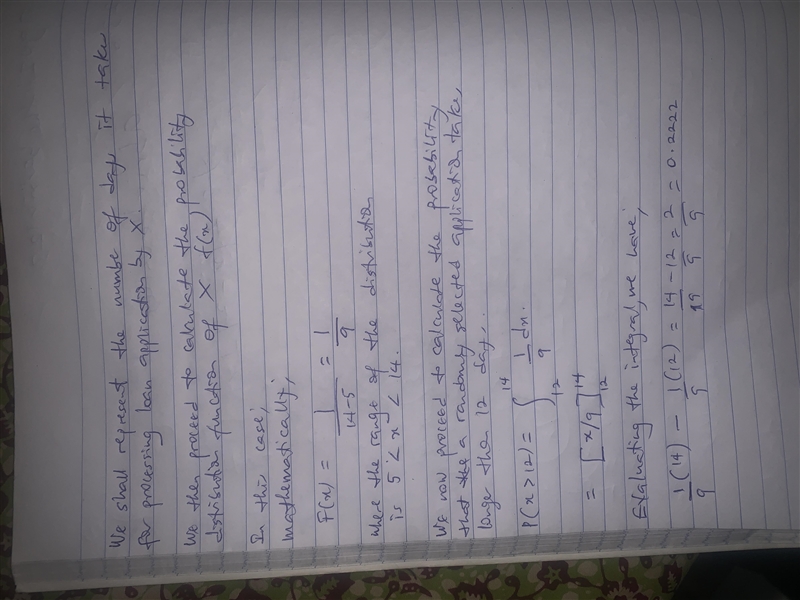 We shall represent the number of day it take
for processing loan application by X.
We then proceed to calculate the probability
distribution function of X f(x)
In this case,
mathematically;
F(x) = 1/(14-5) = 1/9
where the range of the distribution
is 5 < x < 14.
We now proceed to calculate the probability
that the a randomly selected application take
longe then 12 day.
P(x > 12) = ∫₁₂¹⁴ 1/9 dx.
= [x/9]₁₂¹⁴
Evaluating the integral, we have;
1/9 (14) - 1/9 (12) = 14/9 - 12/9 = 2/9 = 0.2222